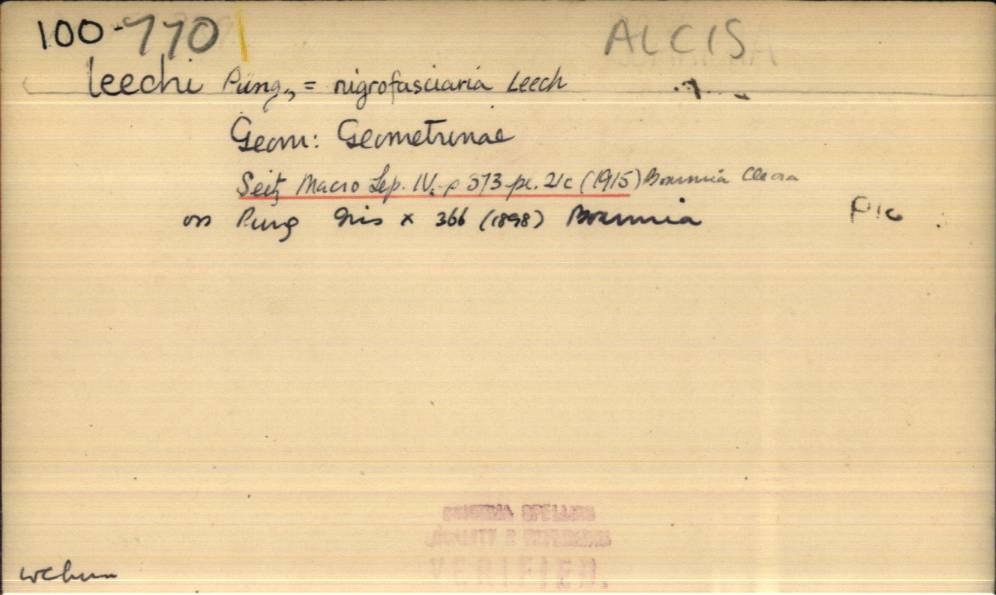 100-770 ALCIS
leechi Püng., = nigrofasciaria Leech
Geom: Geometrinae
Seitz Macro Lep. IV. p 373 pl. 21c (1915) Boarmia Cleora
Püng Iris x 366 (1898) Boarmia
ORIGINAL SPELLING
LOCALITY & REFERENCE
VERIFIED.